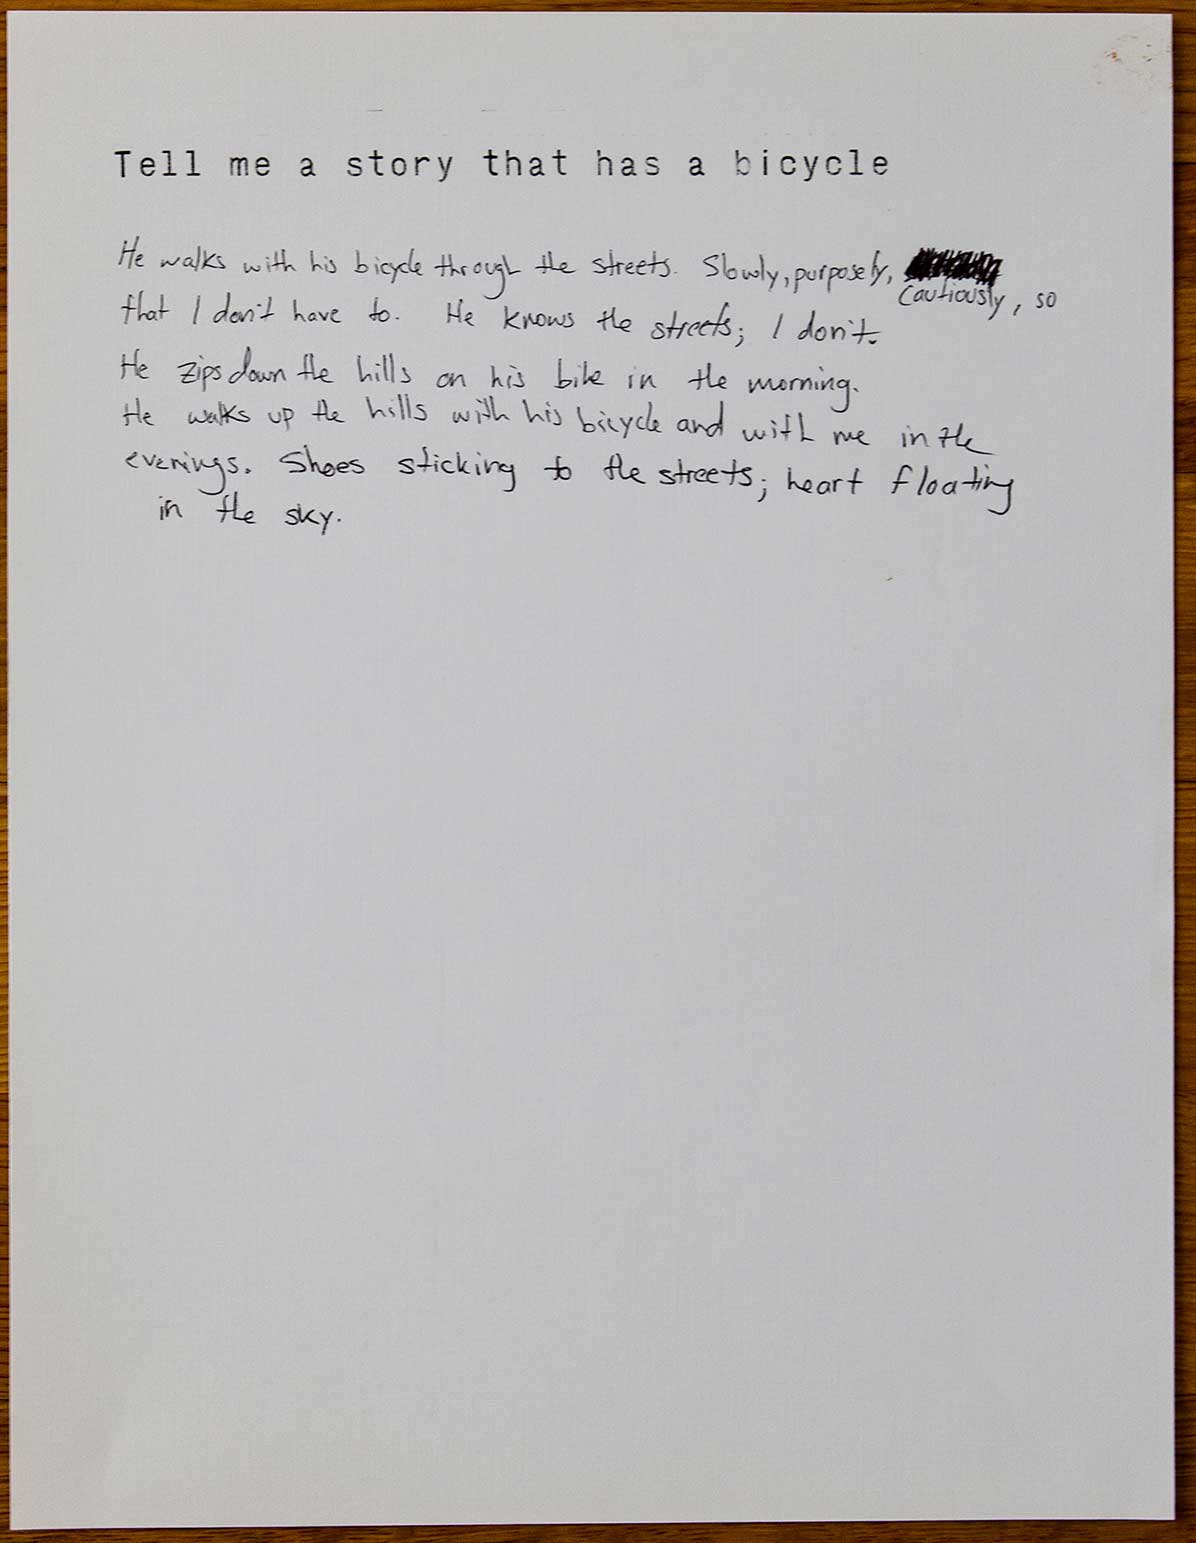 Tell me a story that has a bicycle
He walks with his bicycle through the streets. Slowly, purposely,
Cautiously, so
that I don't have to. He knows the streets; I don't.
He zips down the hills on his bike in the morning.
He walks up the hills with his bicycle and with me in the
evenings. Shoes sticking to the streets; heart floating
in the sky.